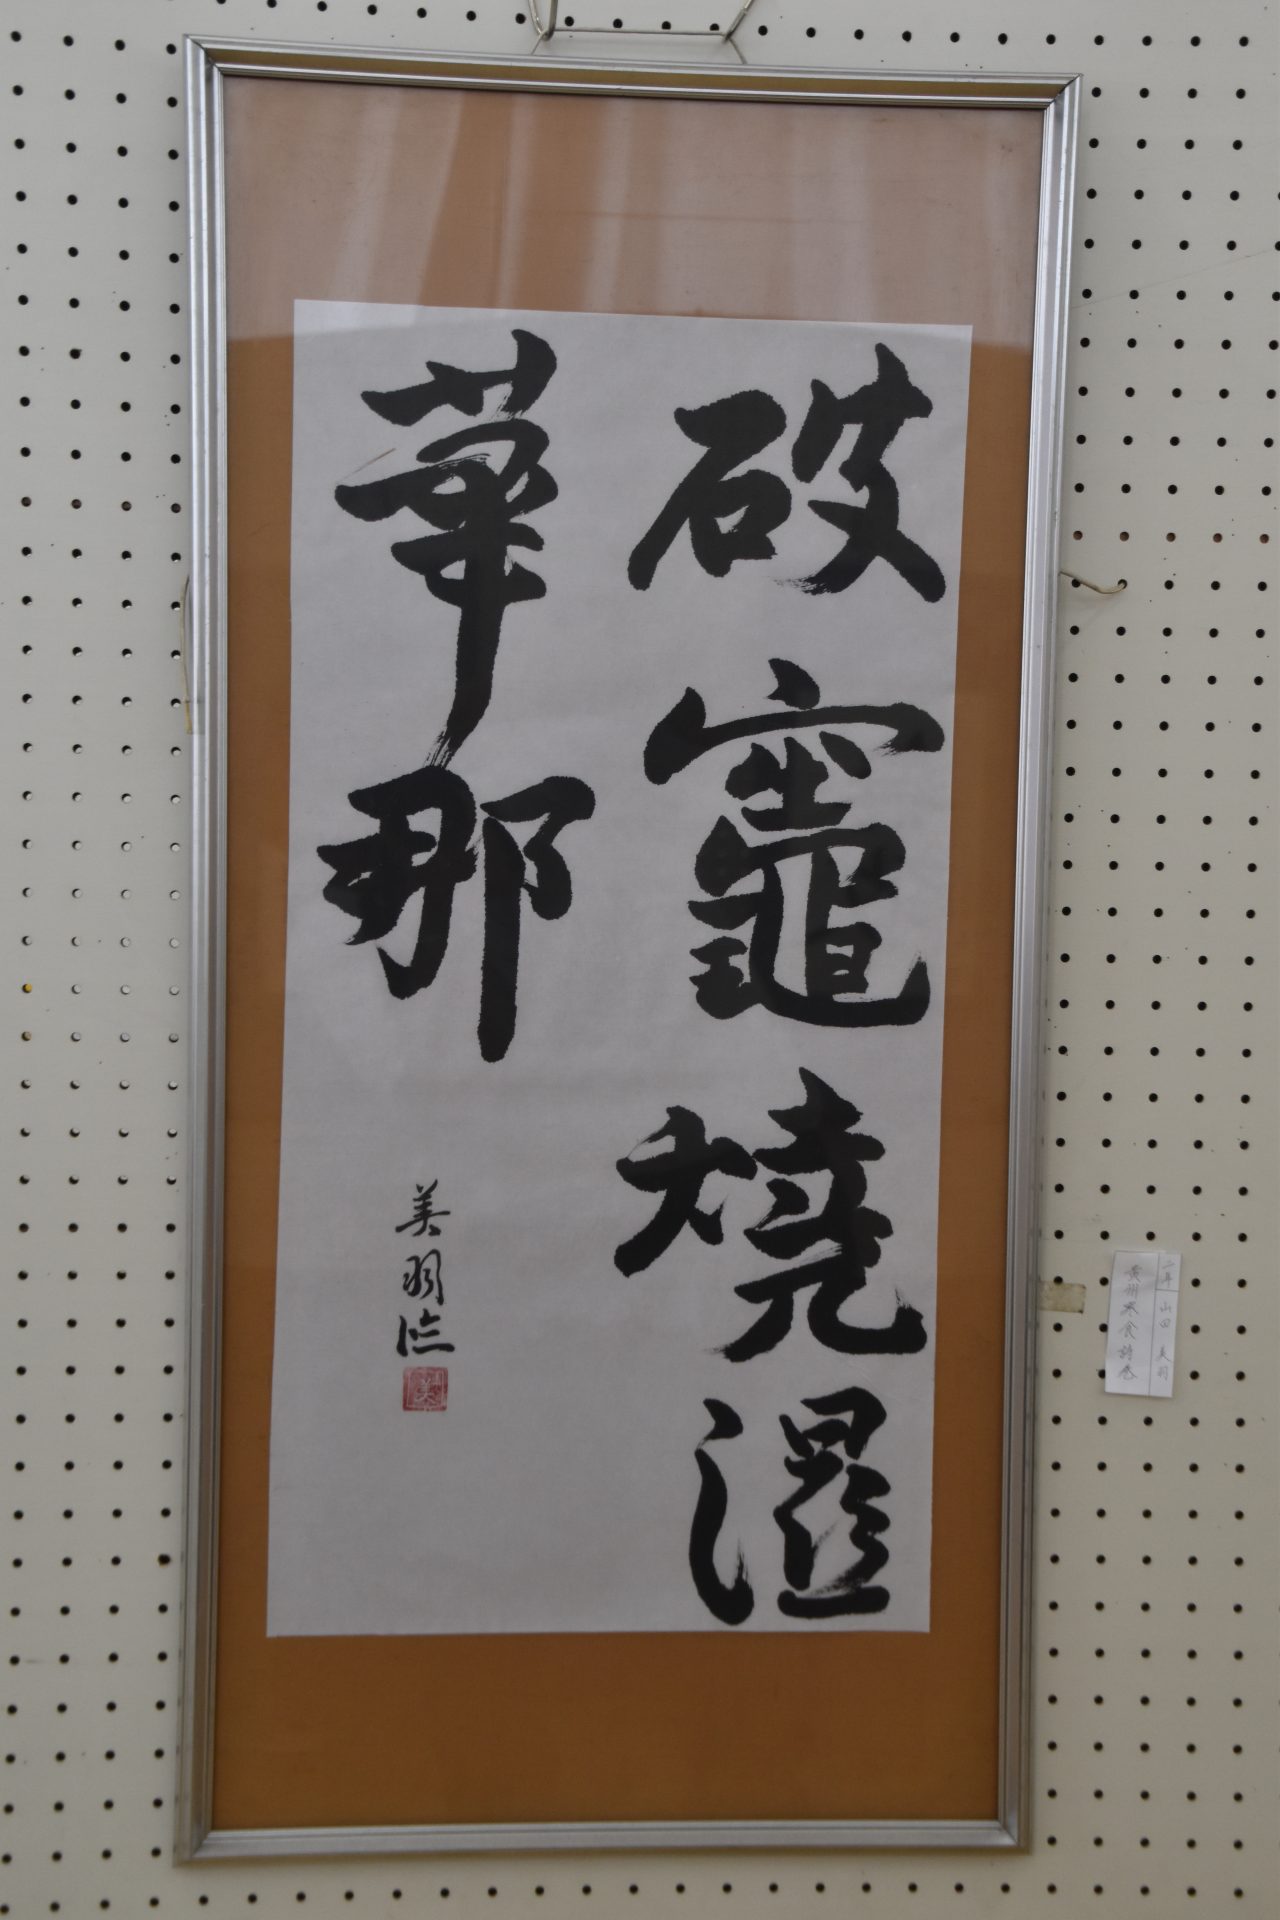 破竈燒濕
葦那
美羽臨
美
二年 山田 美羽
黄州寒食詩巻